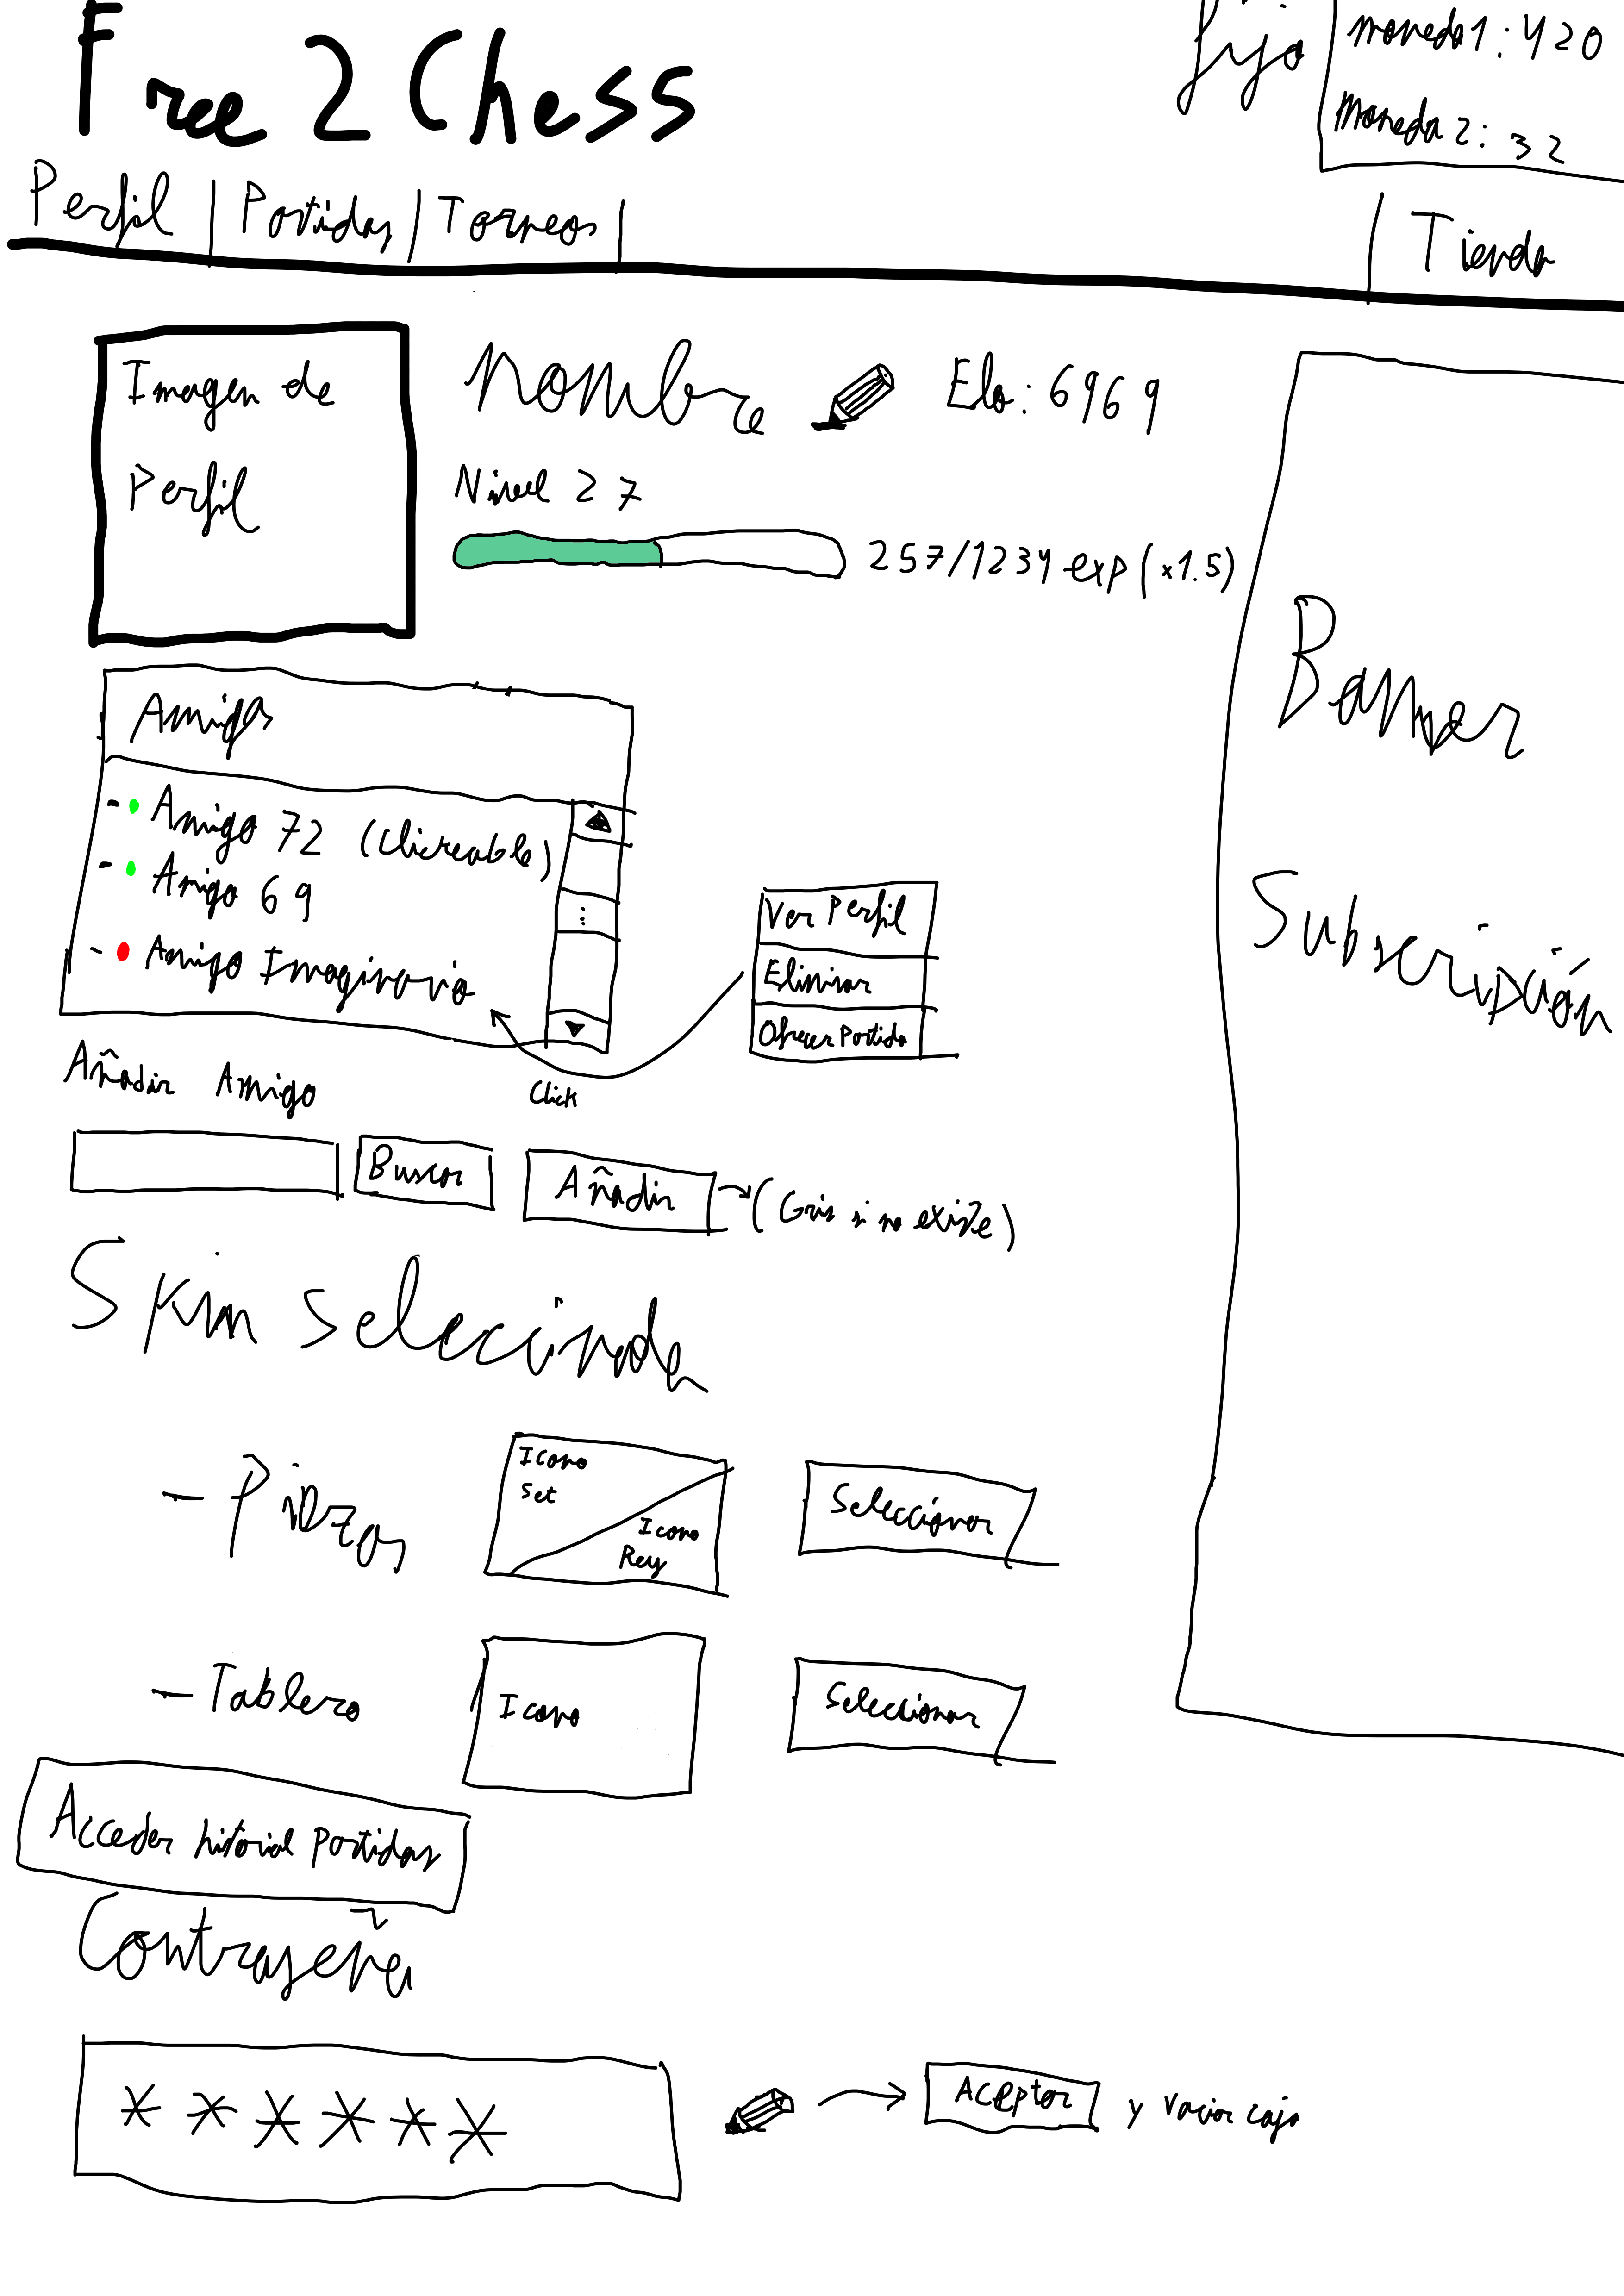 Free 2 Chess
fija
moneda1: 420
moneda2: 32
Perfil | Partidas | Torneos |
Tienda
Imagen de
Perfil
Nombre
Elo: 6969
Nivel 27
257/1234 exp (x1.5)
Banner
Subscripción
Amigos
- Amigo 72 (Clickeable)
- Amigo 69
- Amigo Imaginario
Ver Perfil
Eliminar
Ofrecer Partida
Click
Añadir Amigo
Buscar
Añadir
(Gris si no existe)
Skin Seleccionada
- Piezas
Icono
Set
Icono
Rey
Seleccionar
- Tablero
Icono
Seleccionar
Acceder historial partidas
Contraseña
* * * * * *
Aceptar
y vaciar caja